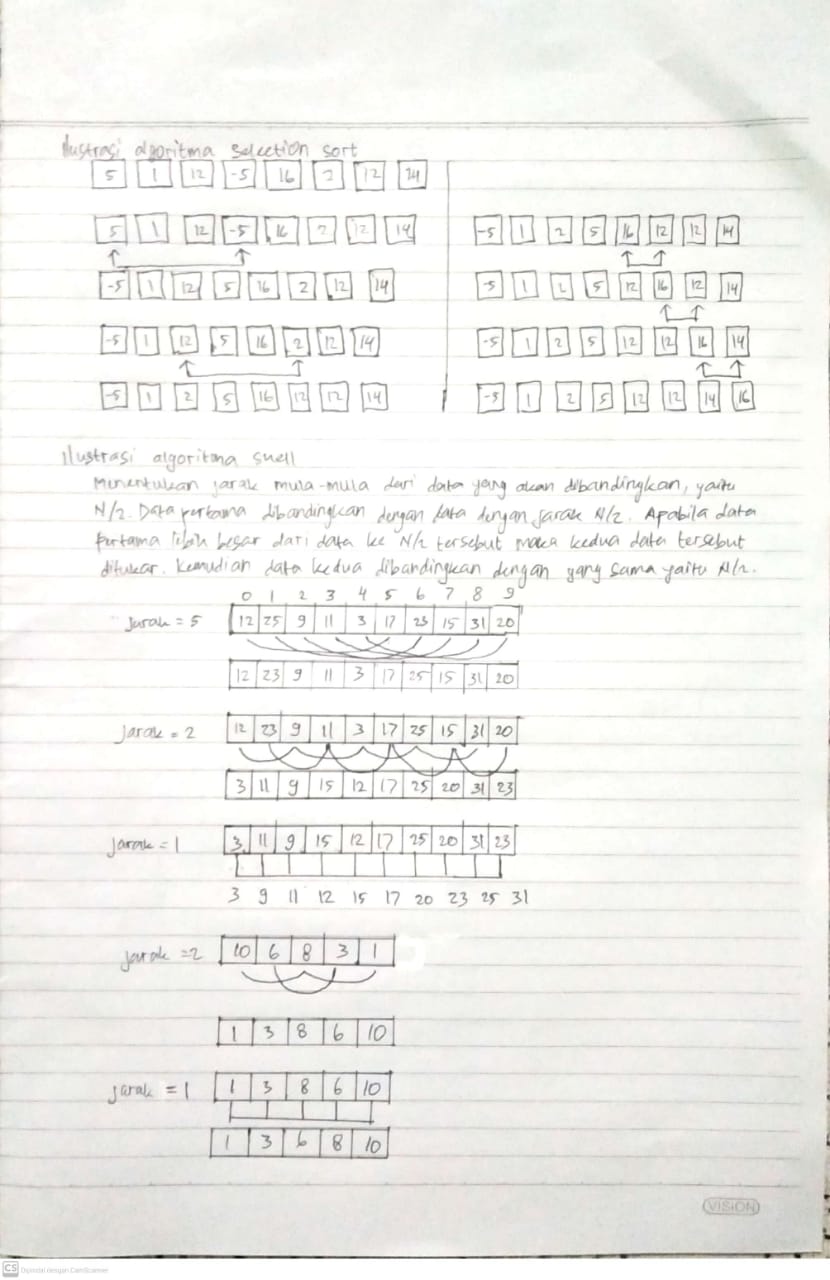 Ilustrasi algoritma selection sort
5 1 12 -5 16 2 12 14
5 1 12 -5 16 2 12 14
-5 1 12 5 16 2 12 14
-5 1 12 5 16 2 12 14
-5 1 2 5 16 12 12 14
-5 1 2 5 16 12 12 14
-5 1 2 5 12 16 12 14
-5 1 2 5 12 12 16 14
-5 1 2 5 12 12 14 16
Ilustrasi algoritma shell
Menentukan jarak mula-mula dari data yang akan dibandingkan, yaitu
N/2. Data pertama dibandingkan dengan data dengan jarak N/2. Apabila data
pertama lebih besar dari data ke N/2 tersebut maka kedua data tersebut
ditukar. Kemudian data kedua dibandingkan dengan yang sama yaitu N/2.
0 1 2 3 4 5 6 7 8 9
Jarak = 5 12 25 9 11 3 17 23 15 31 20
12 23 9 11 3 17 25 15 31 20
Jarak = 2 12 23 9 11 3 17 25 15 31 20
3 11 9 15 12 17 25 20 31 23
Jarak = 1 3 11 9 15 12 17 25 20 31 23
3 9 11 12 15 17 20 23 25 31
Jarak =2 10 6 8 3 1
1 3 8 6 10
jarak = 1 1 3 8 6 10
1 3 6 8 10
VISION
CS Dipindai dengan CamScanner